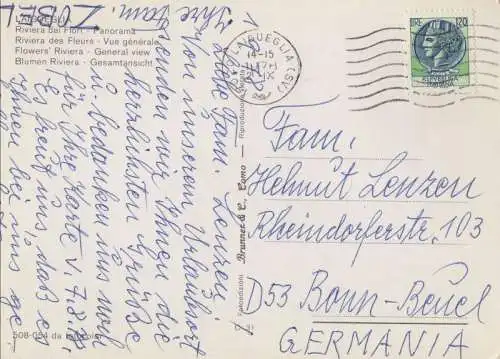 LAIGUEGLIA
Riviera dei Fiori - Panorama
Riviera des Fleurs - Vue générale
Flowers' Riviera - General view
Blumen Riviera - Gesamtansicht
LAIGUEGLIA (SV)
LIRE 120
Fam.
Helmut Lenzen
Rheindorferstr. 103
D53 Bonn-Beuel
GERMANIA
Liebe Fam. Lenzen,
Von unserem Urlaubsort
senden wir Ihnen die
herzlichsten Grüße
u. bedanken uns noch
für Ihre Karte v. 7.8.
Es freut uns daß es
Ihnen bei uns ge
Ihre Fam.
ZOBEL
Brunner & C., Como
Riproduzione
508-054